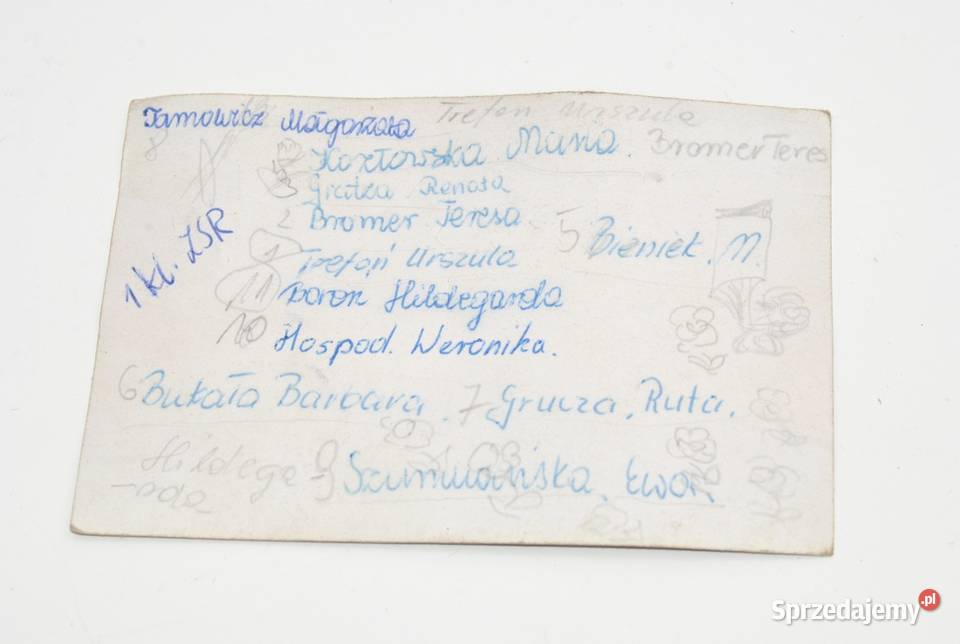 Trefon Urszula
Jamowicz Małgorzata
8 Kozłowska Maria. Bromer Teres
3 Gratza Renata
2 Bromer Teresa 5 Bieniek. M.
1 Trefoń Urszula
1 kl. ZSR
11 Boron Hildegarda
10 Hospod. Weronika.
6 Bukała Barbara. 7 Grucza. Ruta.
Hildega
-rda
9 Szumwańska. Ewa
Sprzedajemy.pl